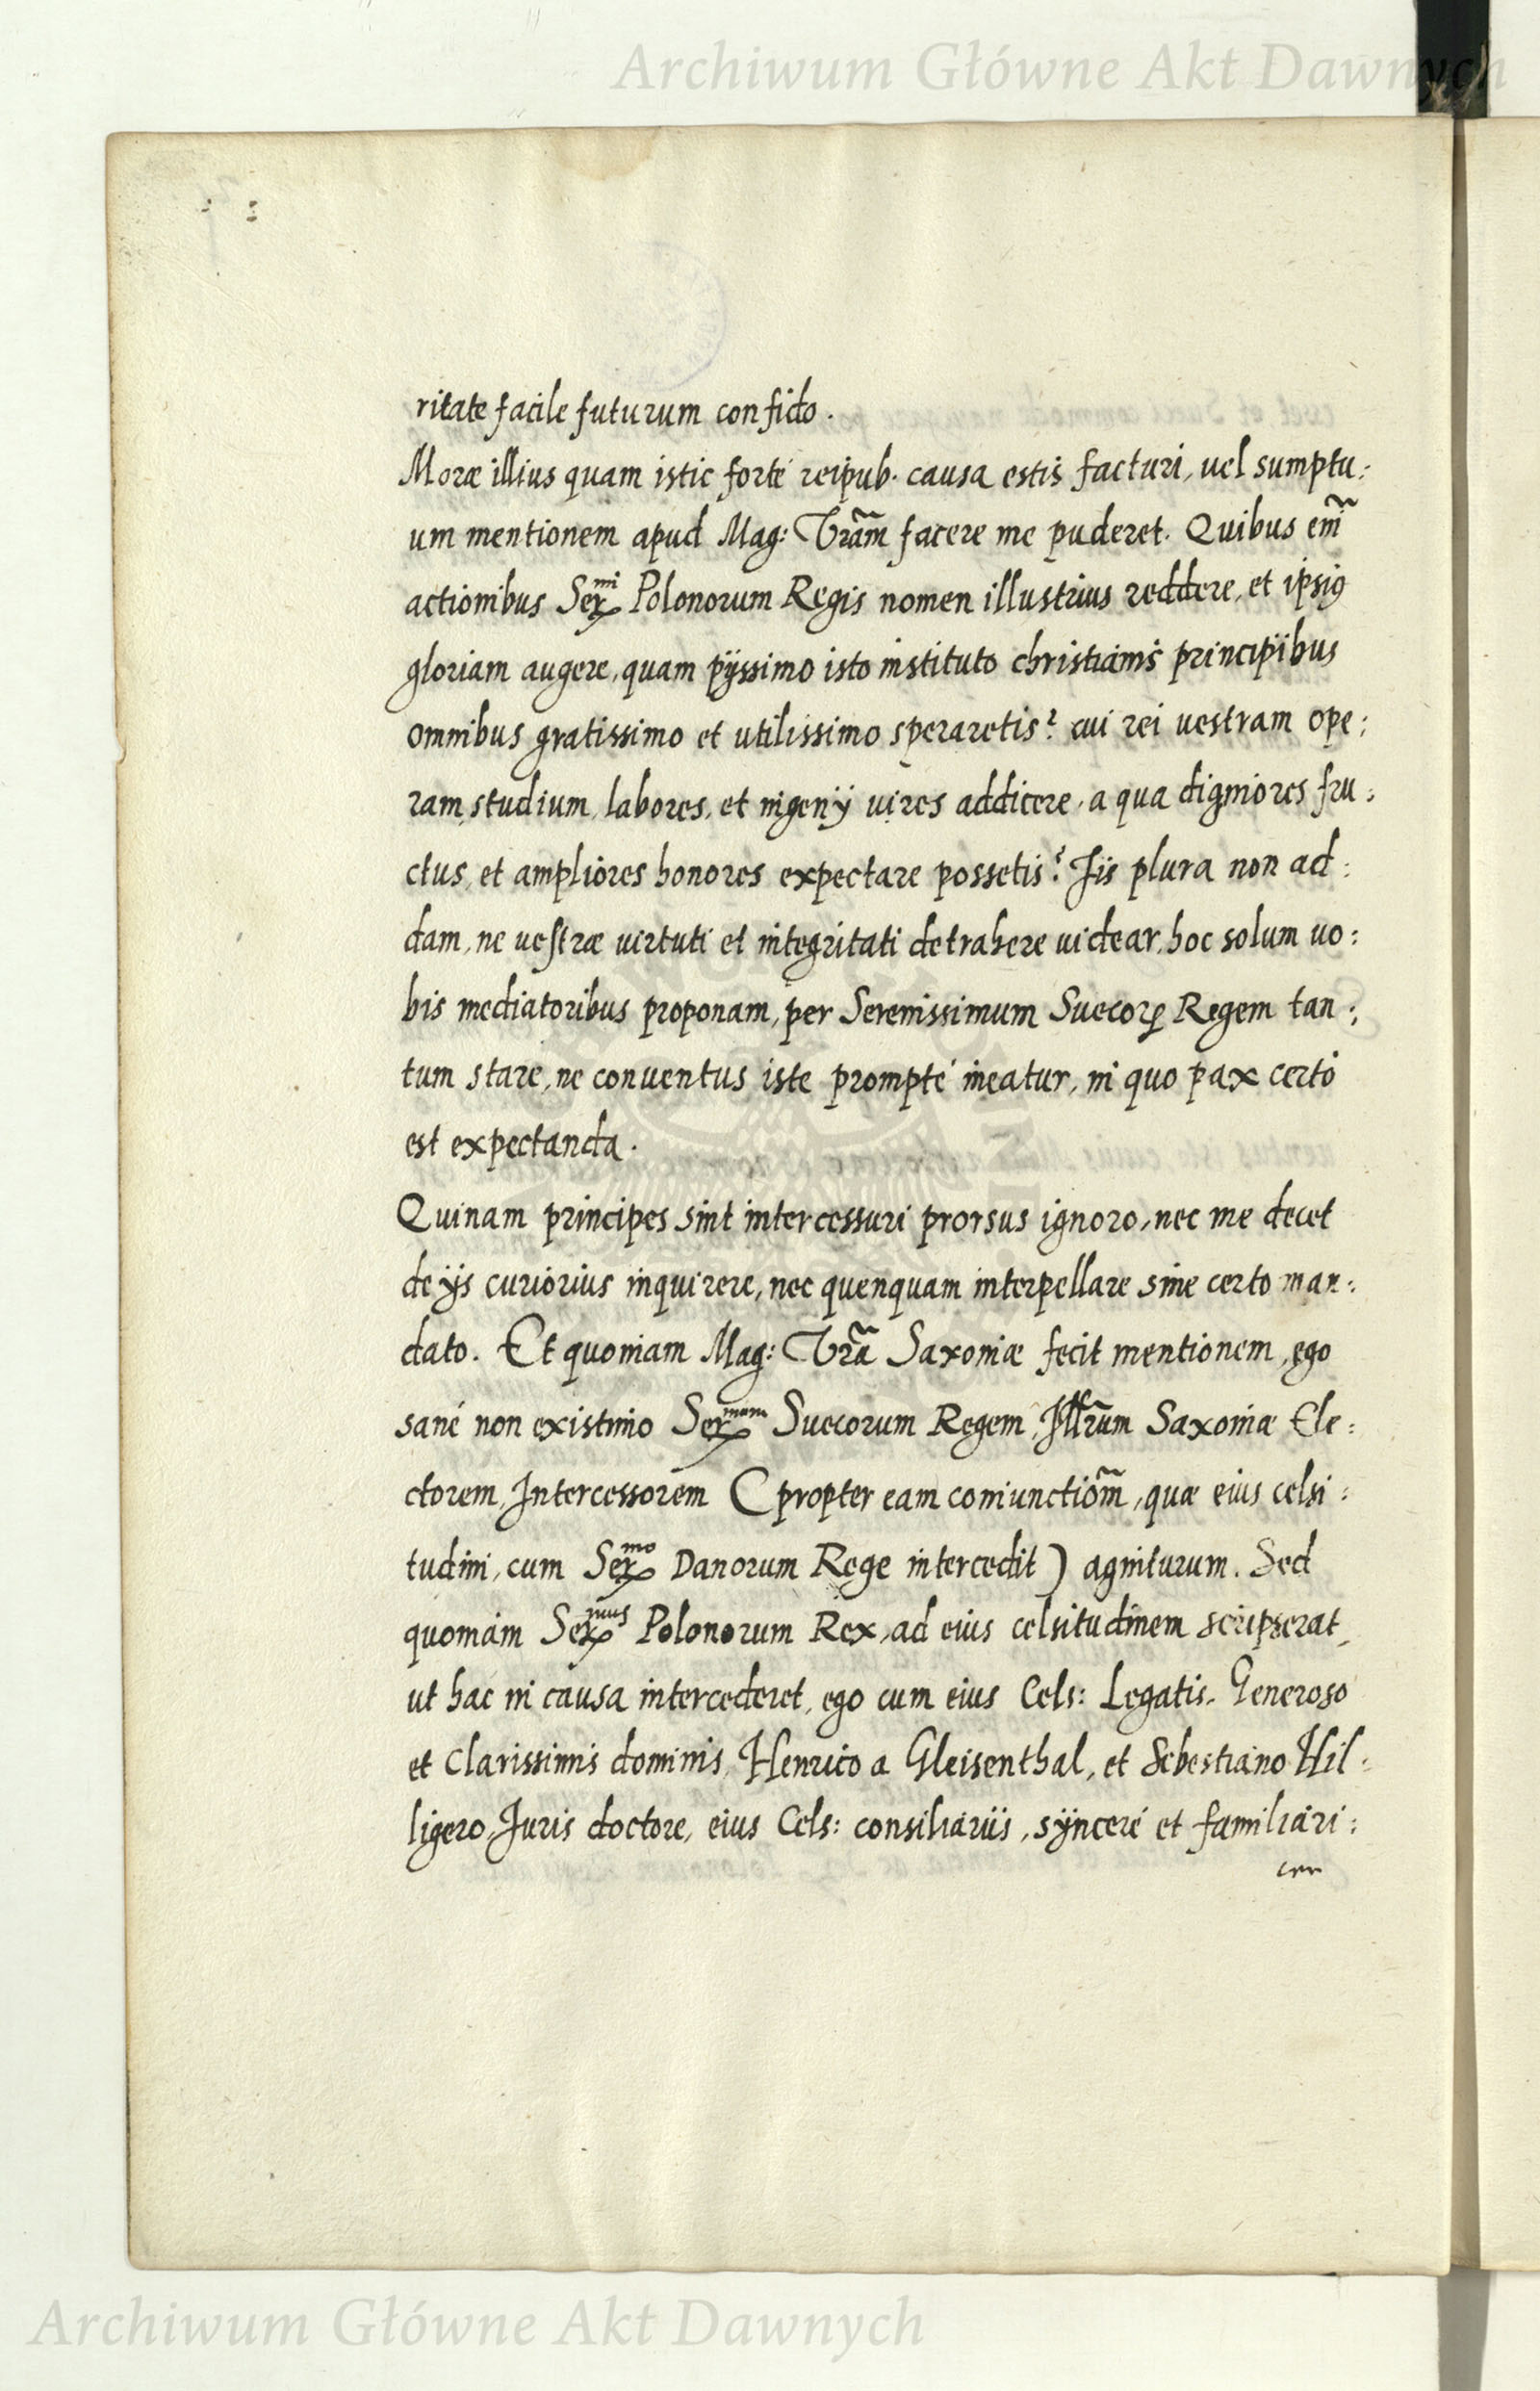 Archiwum Główne Akt Dawnych
ritate facile futurum confido.
Moræ illius quam istic forté reipub. causa estis facturi, uel sumptu:
um mentionem apud Mag: Vr̃am facere me puderet. Quibus em̃
actionibus Ser^mi Polonorum Regis nomen illustrius reddere, et ipsiꝯ
gloriam augere, quam pijssimo isto instituto christianis principibus
omnibus gratissimo et utilissimo speraretis? cui rei uestram ope:
ram, studium, labores, et ingenij uires addicere, a qua digniores fru:
ctus, et ampliores honores expectare possetis? Iis plura non ad:
dam, ne uestræ uirtuti et integritati detrahere uidear, hoc solum uo:
bis mediatoribus proponam, per Serenissimum Suecorꝝ Regem tan:
tum stare, ne conuentus iste prompté ineatur, in quo pax certo
est expectanda.
Quinam principes sint intercessuri prorsus ignoro, nec me decet
de ijs curiorius inquirere, nec quenquam interpellare sine certo man:
dato. Et quoniam Mag: Vr̃a Saxoniæ fecit mentionem, ego
sané non existimo Ser^mum Suecorum Regem, Illr̃um Saxoniæ Ele:
ctorem, Intercessorem (propter eam coniunctiom̃, quæ eius celsi:
tudini, cum Ser^mo Danorum Rege intercedit) agniturum. Sed
quoniam Ser^mus Polonorum Rex, ad eius celsitudinem scripserat,
ut hac in causa intercederet, ego cum eius Cels: Legatis. Generoso
et Clarissimis dominis, Henrico a Gleisenthal, et Sebestiano Hil:
ligero, Juris doctore, eius Cels: consiliariis, sÿnceré et familiari:
ter
Archiwum Główne Akt Dawnych